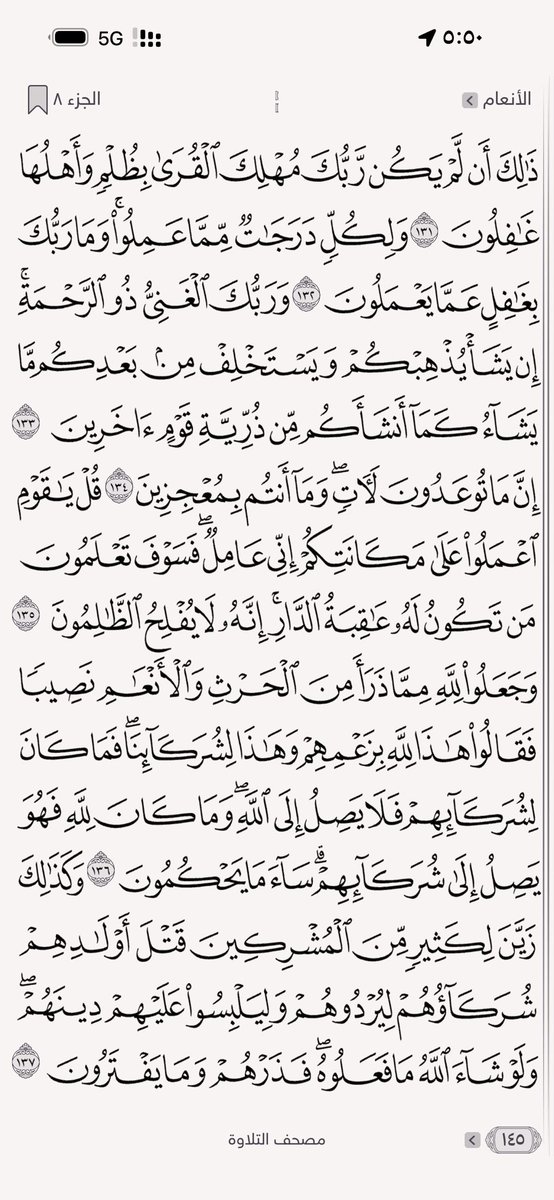 ٥:٥٠ 5G
الأنعام الجزء ٨
ذَٰلِكَ أَن لَّمْ يَكُن رَّبُّكَ مُهْلِكَ ٱلْقُرَىٰ بِظُلْمٍ وَأَهْلُهَا
غَٰفِلُونَ ١٣١ وَلِكُلٍّ دَرَجَٰتٌ مِّمَّا عَمِلُوا۟ ۚ وَمَا رَبُّكَ
بِغَٰفِلٍ عَمَّا يَعْمَلُونَ ١٣٢ وَرَبُّكَ ٱلْغَنِىُّ ذُو ٱلرَّحْمَةِ ۚ
إِن يَشَأْ يُذْهِبْكُمْ وَيَسْتَخْلِفْ مِنۢ بَعْدِكُم مَّا
يَشَآءُ كَمَآ أَنشَأَكُم مِّن ذُرِّيَّةِ قَوْمٍ ءَاخَرِينَ ١٣٣
إِنَّ مَا تُوعَدُونَ لَءَاتٍ ۖ وَمَآ أَنتُم بِمُعْجِزِينَ ١٣٤ قُلْ يَٰقَوْمِ
ٱعْمَلُوا۟ عَلَىٰ مَكَانَتِكُمْ إِنِّى عَامِلٌ ۖ فَسَوْفَ تَعْلَمُونَ
مَن تَكُونُ لَهُۥ عَٰقِبَةُ ٱلدَّارِ ۗ إِنَّهُۥ لَا يُفْلِحُ ٱلظَّٰلِمُونَ ١٣٥
وَجَعَلُوا۟ لِلَّهِ مِمَّا ذَرَأَ مِنَ ٱلْحَرْثِ وَٱلْأَنْعَٰمِ نَصِيبًا
فَقَالُوا۟ هَٰذَا لِلَّهِ بِزَعْمِهِمْ وَهَٰذَا لِشُرَكَآئِنَا ۖ فَمَا كَانَ
لِشُرَكَآئِهِمْ فَلَا يَصِلُ إِلَى ٱللَّهِ ۖ وَمَا كَانَ لِلَّهِ فَهُوَ
يَصِلُ إِلَىٰ شُرَكَآئِهِمْ ۗ سَآءَ مَا يَحْكُمُونَ ١٣٦ وَكَذَٰلِكَ
زَيَّنَ لِكَثِيرٍ مِّنَ ٱلْمُشْرِكِينَ قَتْلَ أَوْلَٰدِهِمْ
شُرَكَآؤُهُمْ لِيُرْدُوهُمْ وَلِيَلْبِسُوا۟ عَلَيْهِمْ دِينَهُمْ ۖ
وَلَوْ شَآءَ ٱللَّهُ مَا فَعَلُوهُ ۖ فَذَرْهُمْ وَمَا يَفْتَرُونَ ١٣٧
١٤٥ مصحف التلاوة